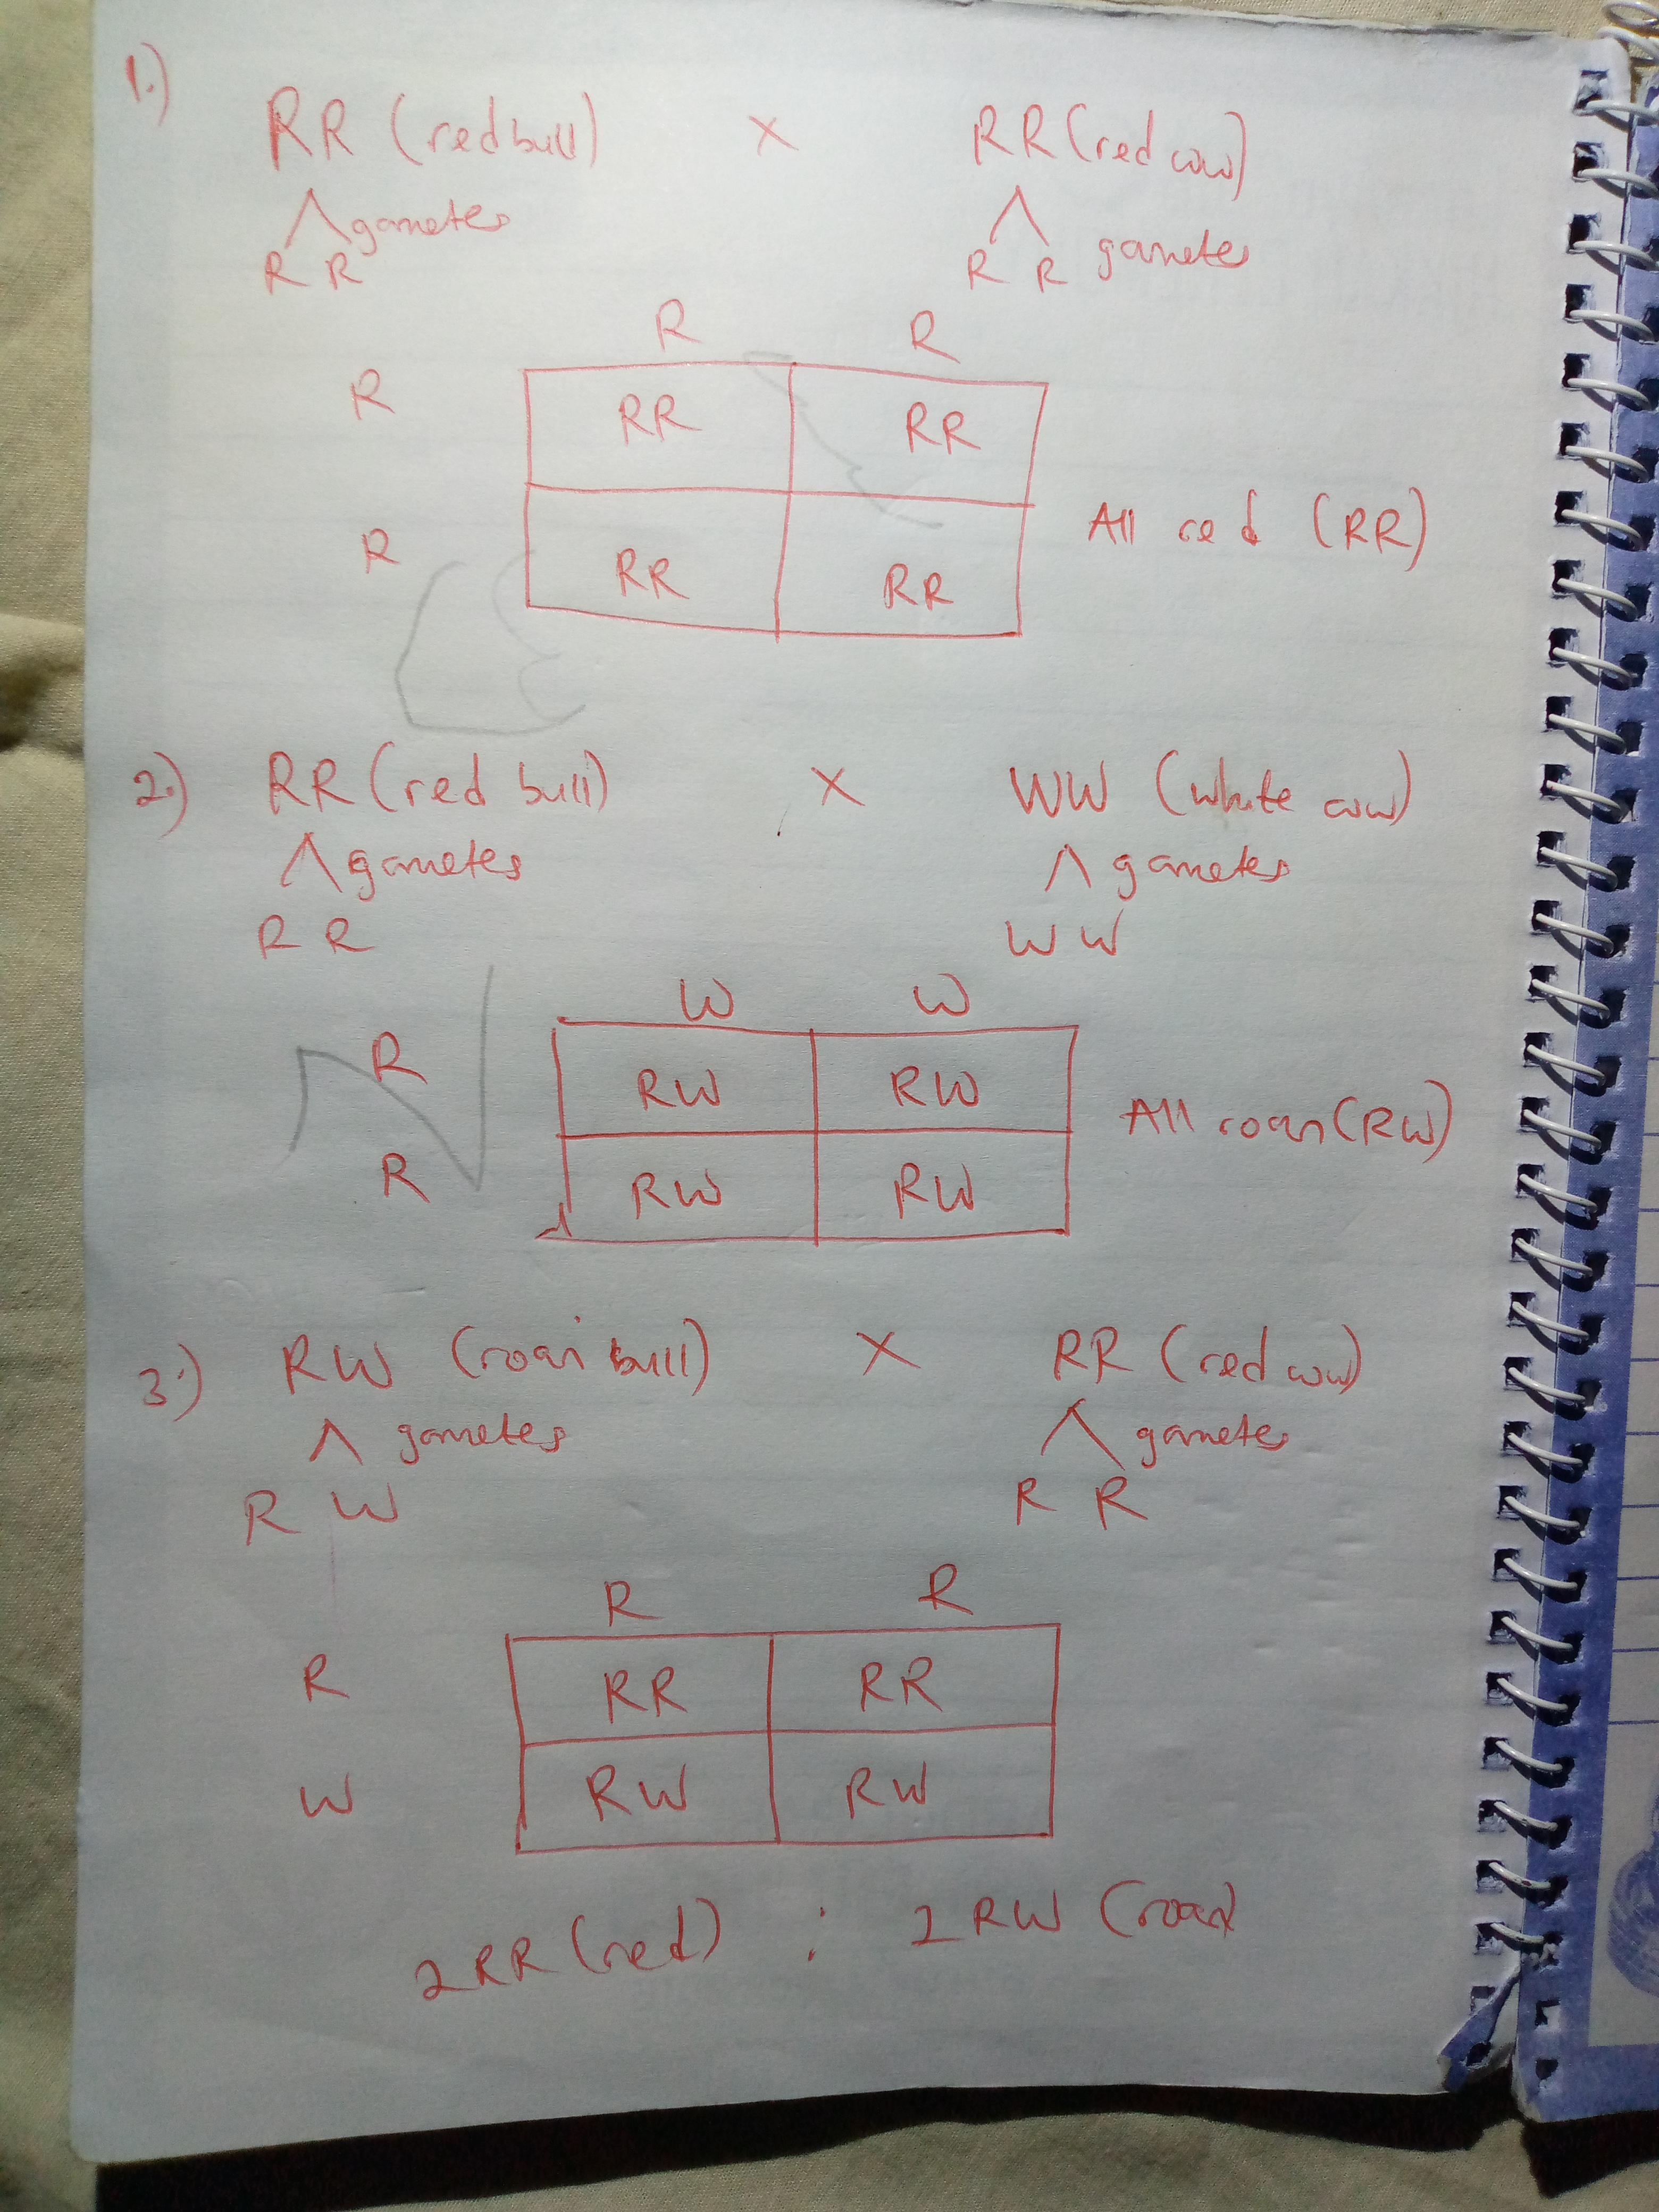 1.)
RR (red bull) × RR (red cow)
gametes
R R R R gametes
R R
R RR RR
All red (RR)
R RR RR
2.) RR (red bull) × WW (white cow)
gametes gametes
R R W W
W W
R RW RW
All roan (RW)
R RW RW
3.) RW (roan bull) × RR (red cow)
gametes gametes
R W R R
R R
R RR RR
W RW RW
2RR (red) : 2 RW (roan)